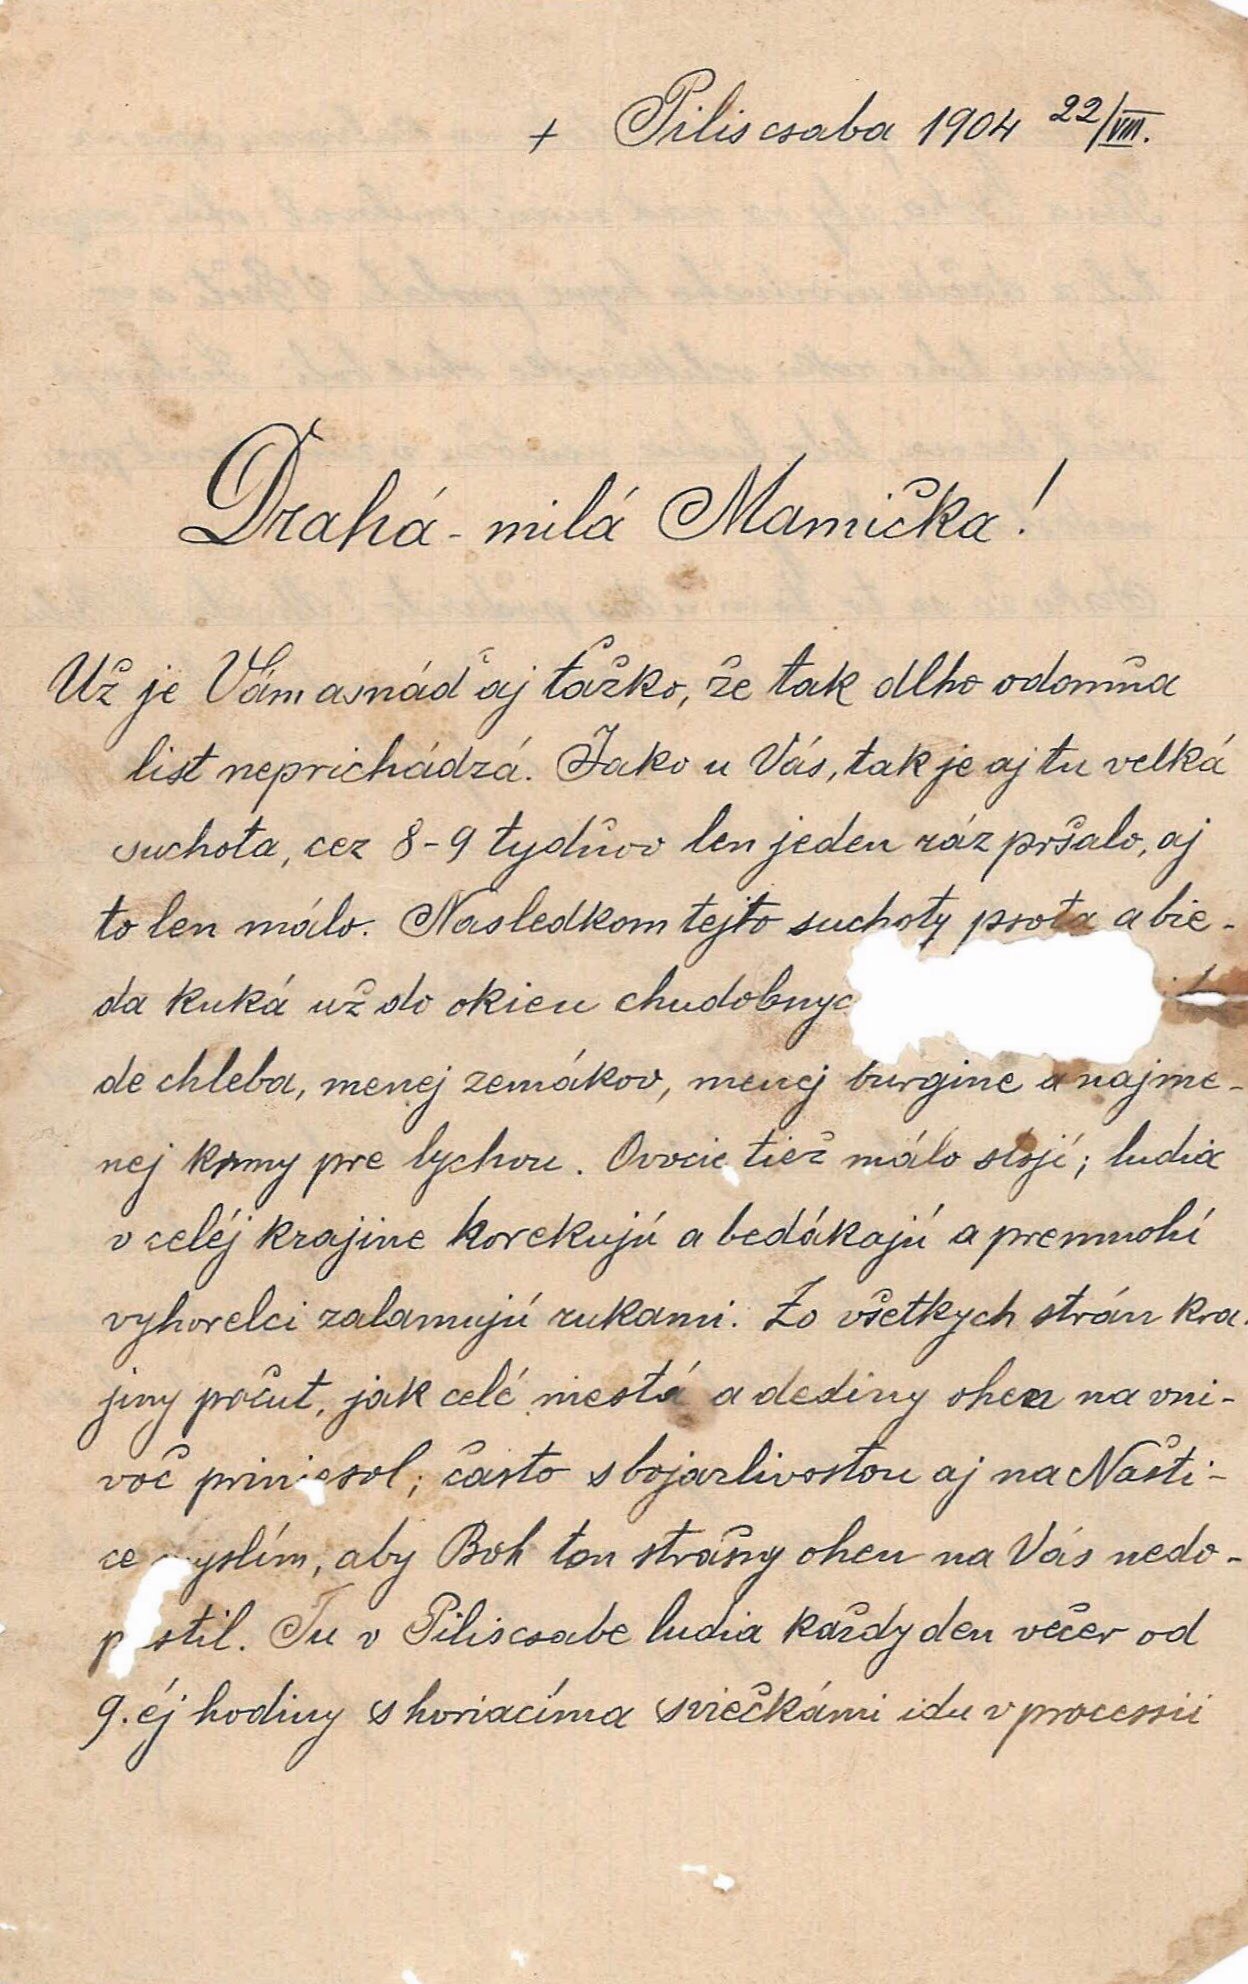 + Piliscsaba 1904 22/VIII.
Drahá - milá Mamička!
Už je Vám asnáď aj ťažko, že tak dlho odomňa
list neprichádzá. Jako u Vás, tak je aj tu velká
suchota, cez 8-9 tydňov len jeden ráz pršalo, aj
to len málo. Nasledkom tejto suchoty psota a bie-
da kuká už do okien chudobnyc
de chleba, menej zemákov, menej burgine a najme-
nej krmy pre lychvu. Ovocie tiež málo stojí; ludia
v celéj krajine horekujú a bedákajú a premnohí
vyhorelci zalamujú rukami. Zo všetkych strán kra-
jiny počut, jak celé mestá a dediny oheň na vni-
voč priniesol; často s bojazlivostou aj na Našti-
ce myslím, aby Boh ten strašny ohen na Vás nedo-
p stil. Tu v Piliscsabe ludia každy den večer od
9. éj hodiny s horiacíma sviečkámi idu v processii